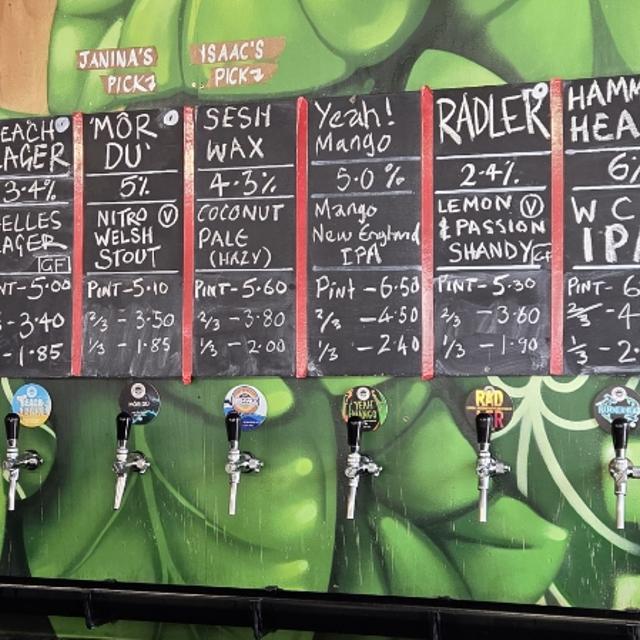 JANINA'S
PICK
YSAAC'S
PICK
EACH
AGER
3.4%
ELLES
AGER
GF
NT-5.00
- 3.40
- 1.85
'MÔR
DU'
5%
NITRO V
WELSH
STOUT
PINT-5.10
2/3 - 3.50
1/3 - 1.85
SESH
WAX
4.3%
COCONUT
PALE
(HAZY)
PINT-5.60
2/3 - 3.80
1/3 - 2.00
Yeah!
Mango
5.0%
Mango
New England
IPA
Pint -6.50
2/3 -4.50
1/3 -2.40
RADLER
2.4%
LEMON V
& PASSION
SHANDY GF
PINT-5.30
2/3 - 3.60
1/3 - 1.90
HAMM
HEA
6%
W C
IPA
PINT-6
2/3 - 4
1/3 - 2.
MÔR DU
YEAH
MANGO
RAD